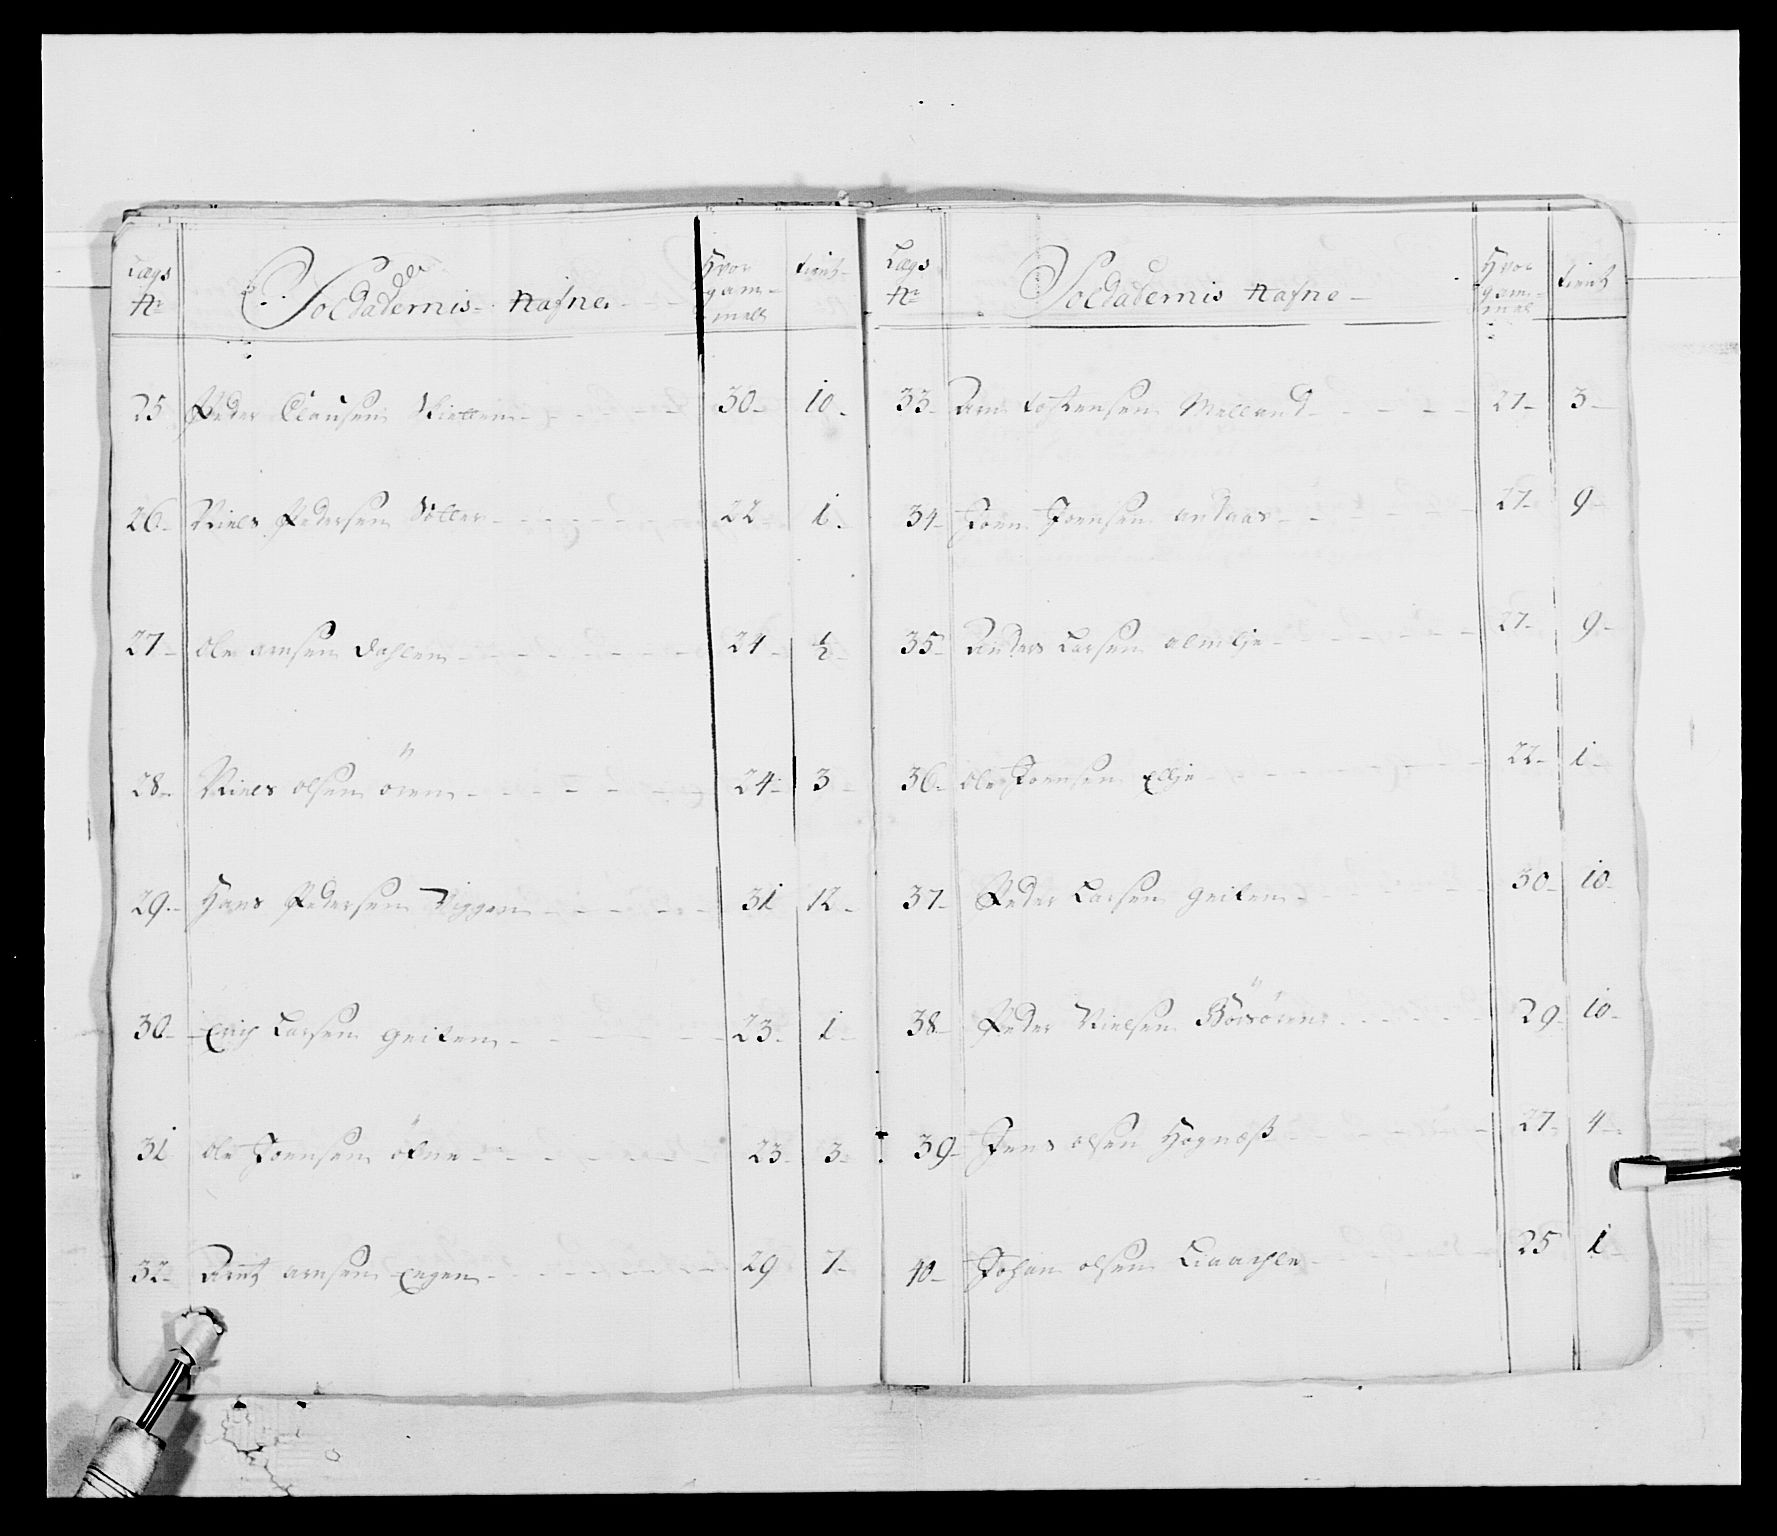 Lægs No Soldaternis Nafne Hvor gammel tient
25 Peder Clausen 30 10
26 Niels Pedersen 22 1
27 Ole arnsen Dahlen 24 1/2
28 Niels olsen ören 24 3
29 Hans Pedersen Viggen 31 12
30 Erich Larsen Geilen 23 1
31 Ole Joensen 23 3
32 Arnt arnsen Engen 29 7
Lægs No Soldaternis Nafne Hvor gammel tient
33 Arn tostensen Melland 27 3
34 Joen Joensen andaas 27 9
35 Anders Larsen almlje 27 9
36 Ole Joensen 22 1
37 Peder Larsen Geilen 30 10
38 Peder Nielsen Börsören 29 10
39 Jens olsen Hognæss 27 4
40 Johan olsen 25 1